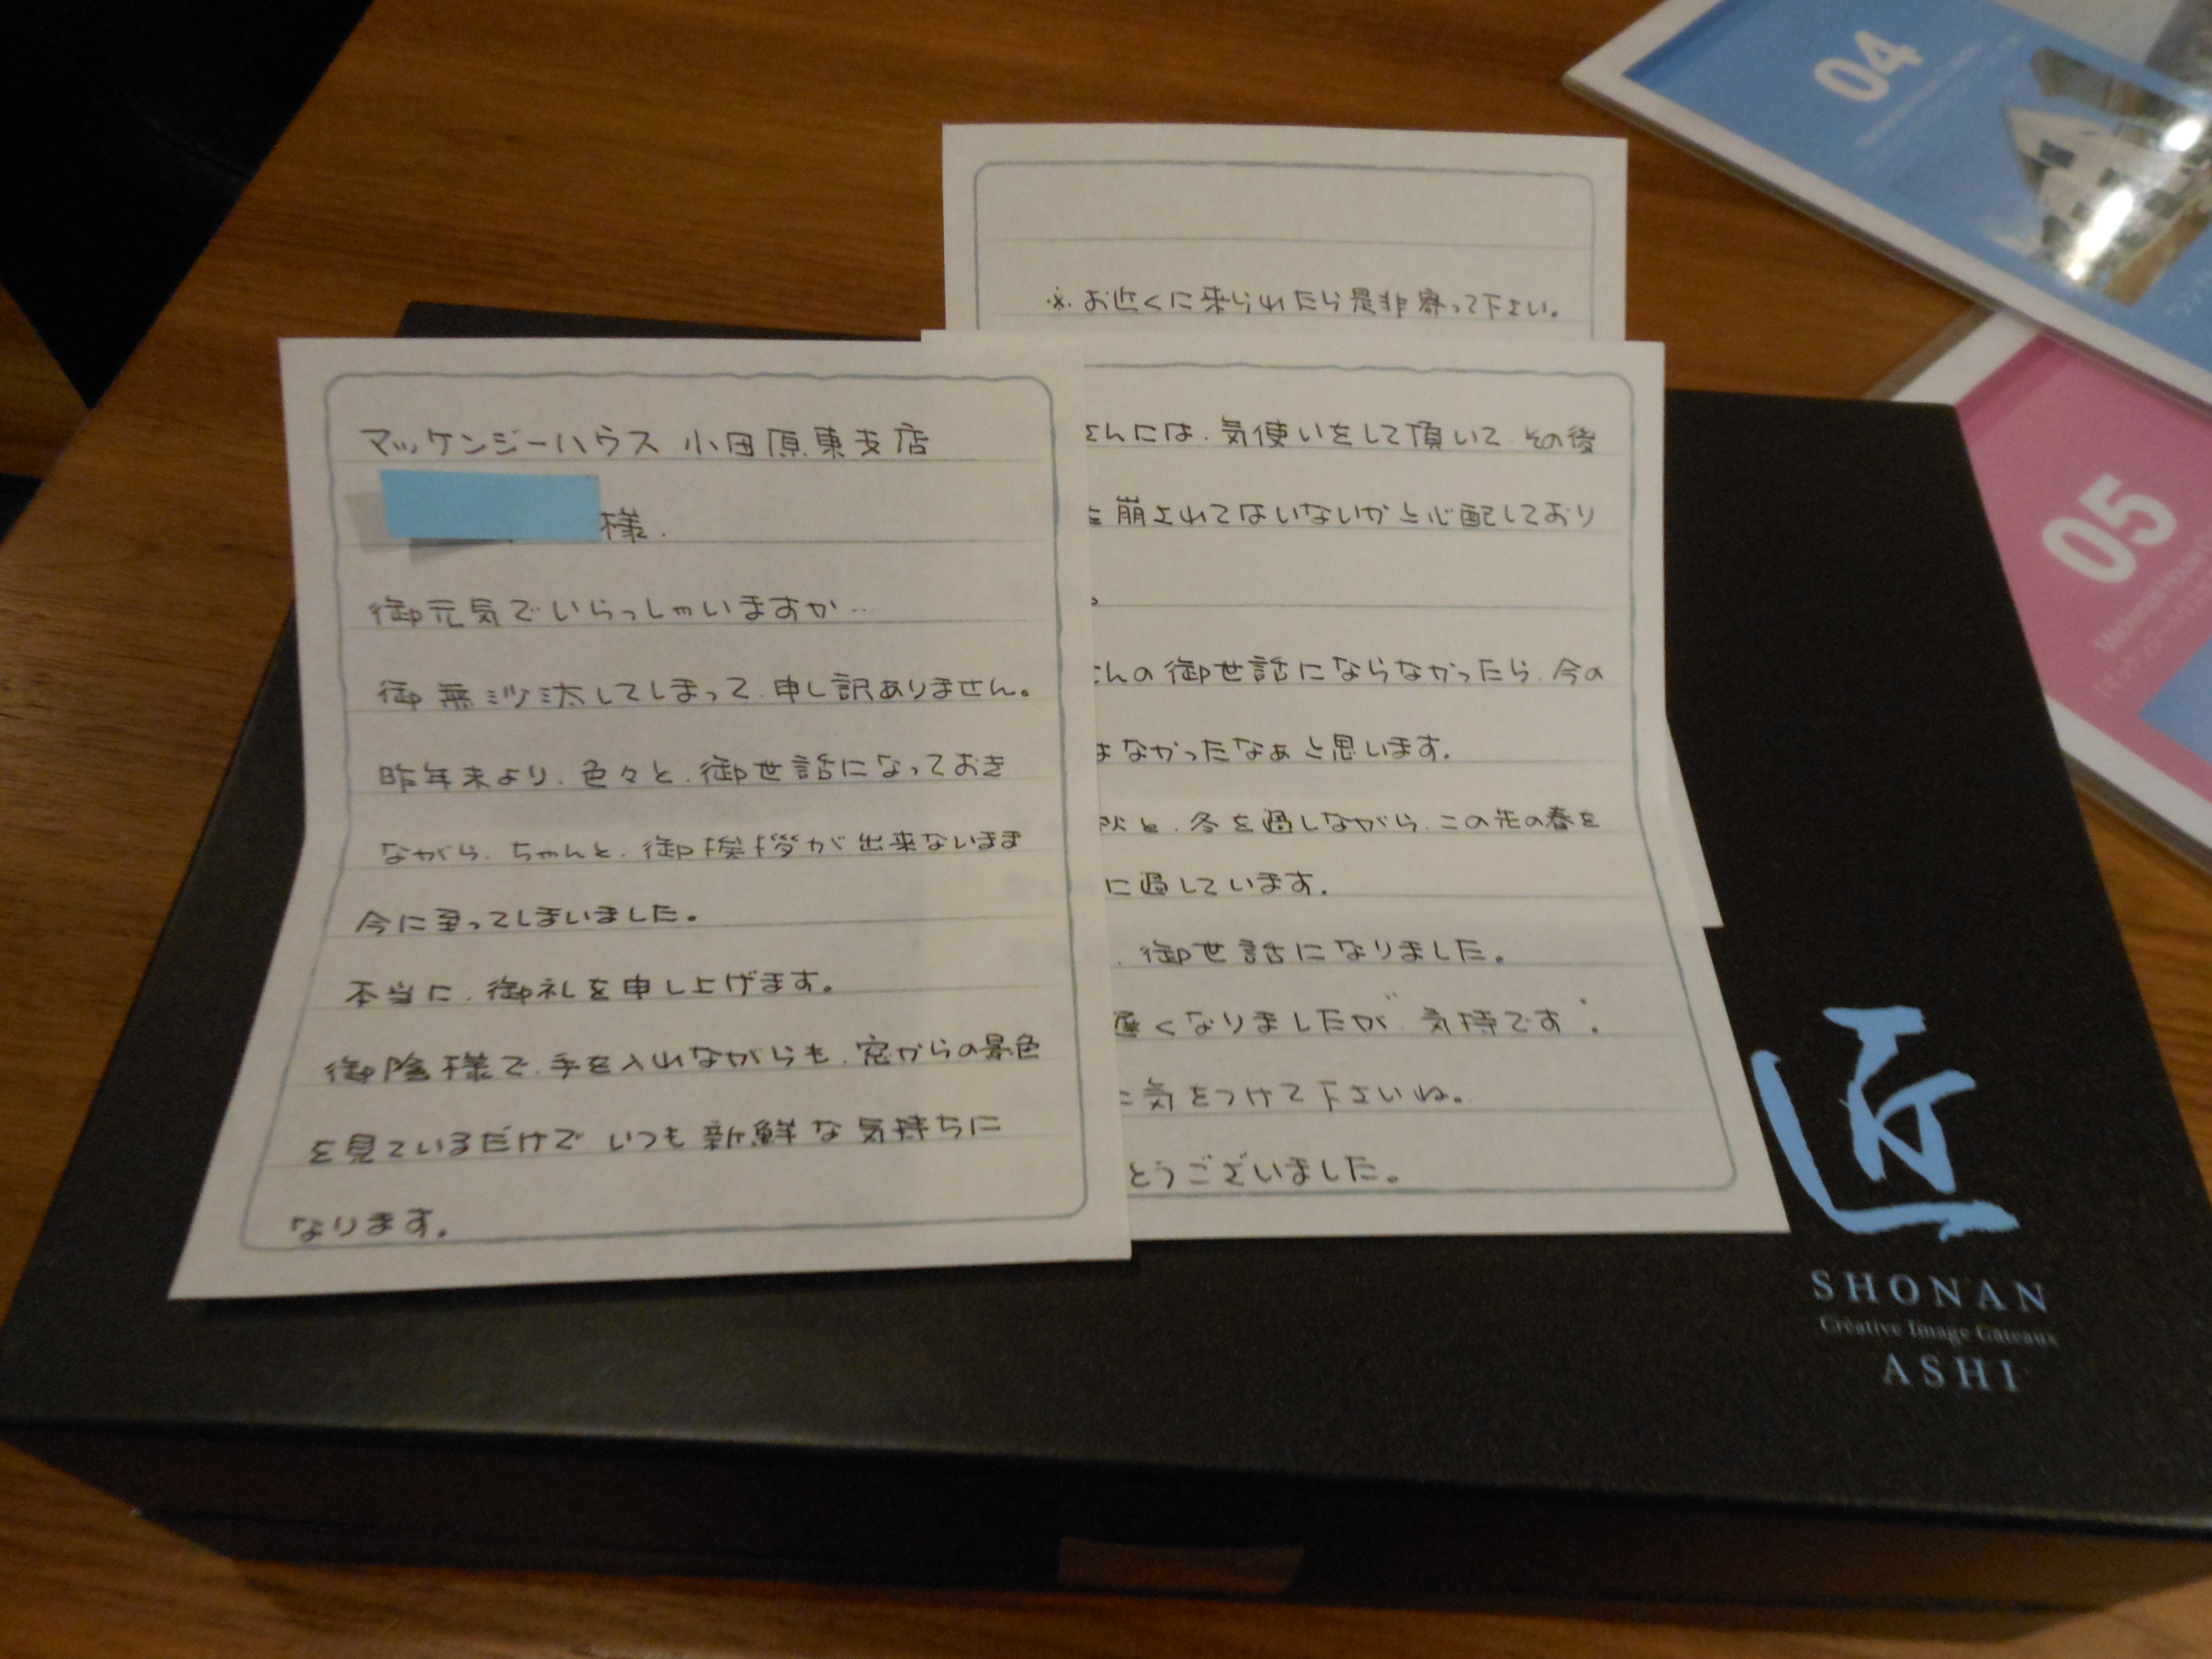 マッケンジーハウス 小田原東支店
様.
御元気でいらっしゃいますか‥
御無沙汰してしまって、申し訳ありません。
昨年末より、色々と、御世話になっておき
ながら、ちゃんと、御挨拶が出来ないまま
今に至ってしまいました。
本当に、御礼を申し上げます。
御陰様で、手を入れながらも、窓からの景色
を見ているだけで いつも新鮮な気持ちに
なります。
さんには、気使いをして頂いて、その後
を崩されてないないかと心配しており
。
さんの御世話にならなかったら、今の
はなかったなぁと思います。
秋と、冬を過しながら、この先の春を
に過しています.
、御世話になりました。
遅くなりましたが、気持です.
に気をつけて下さいね。
とうございました。
※.お近くに来られたら是非寄って下さい。
04
05
匠
SHONAN
Créative Image Gâteaux
ASHI